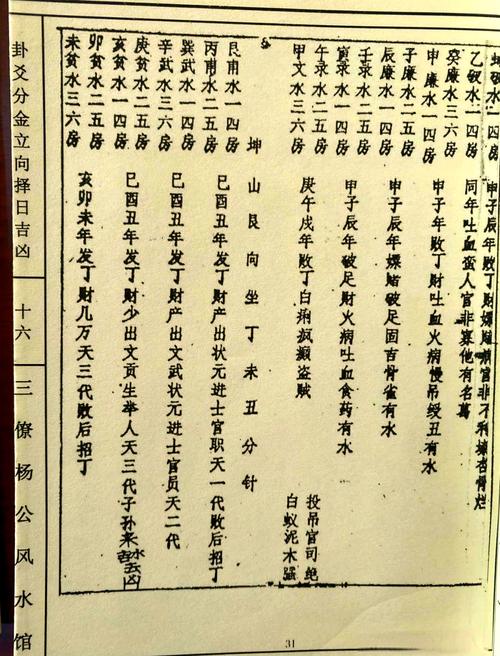 破水一四房
乙破水一四房
癸廉水三六房
申廉水一四房
子廉水二五房
辰廉水一四房
壬录水二五房
寅录水一四房
午录水二五房
甲文水三六房
甲子辰年败丁财嫖赌官非不利骨烂
同年吐血蛮人官非寡他有名
甲子年败丁财吐血火病慢吊绶丑有水
甲子辰年嫖赌破足固吉骨雀有水
甲子辰年破足财火病吐血食药有水
庚午戌年败丁白痢疯癫盗贼
投吊官司绝
白蚁泥木强
坤山艮向坐丁未丑分针
艮甫水一四房
丙甫水二五房
巽武水一四房
辛武水三六房
庚贪水二五房
亥贪水一四房
卯贪水二五房
未贪水三六房
巳酉丑年发丁财产出状元进士官职天一代败后招丁
巳酉丑年发丁财产出文武状元进士官员天二代
巳酉丑年发丁财少出文贡生举人天三代子孙来水去吉凶
亥卯未年发丁财几万天三代败后招丁
卦爻分金立向择日吉凶
十六
三僚杨公风水馆
31